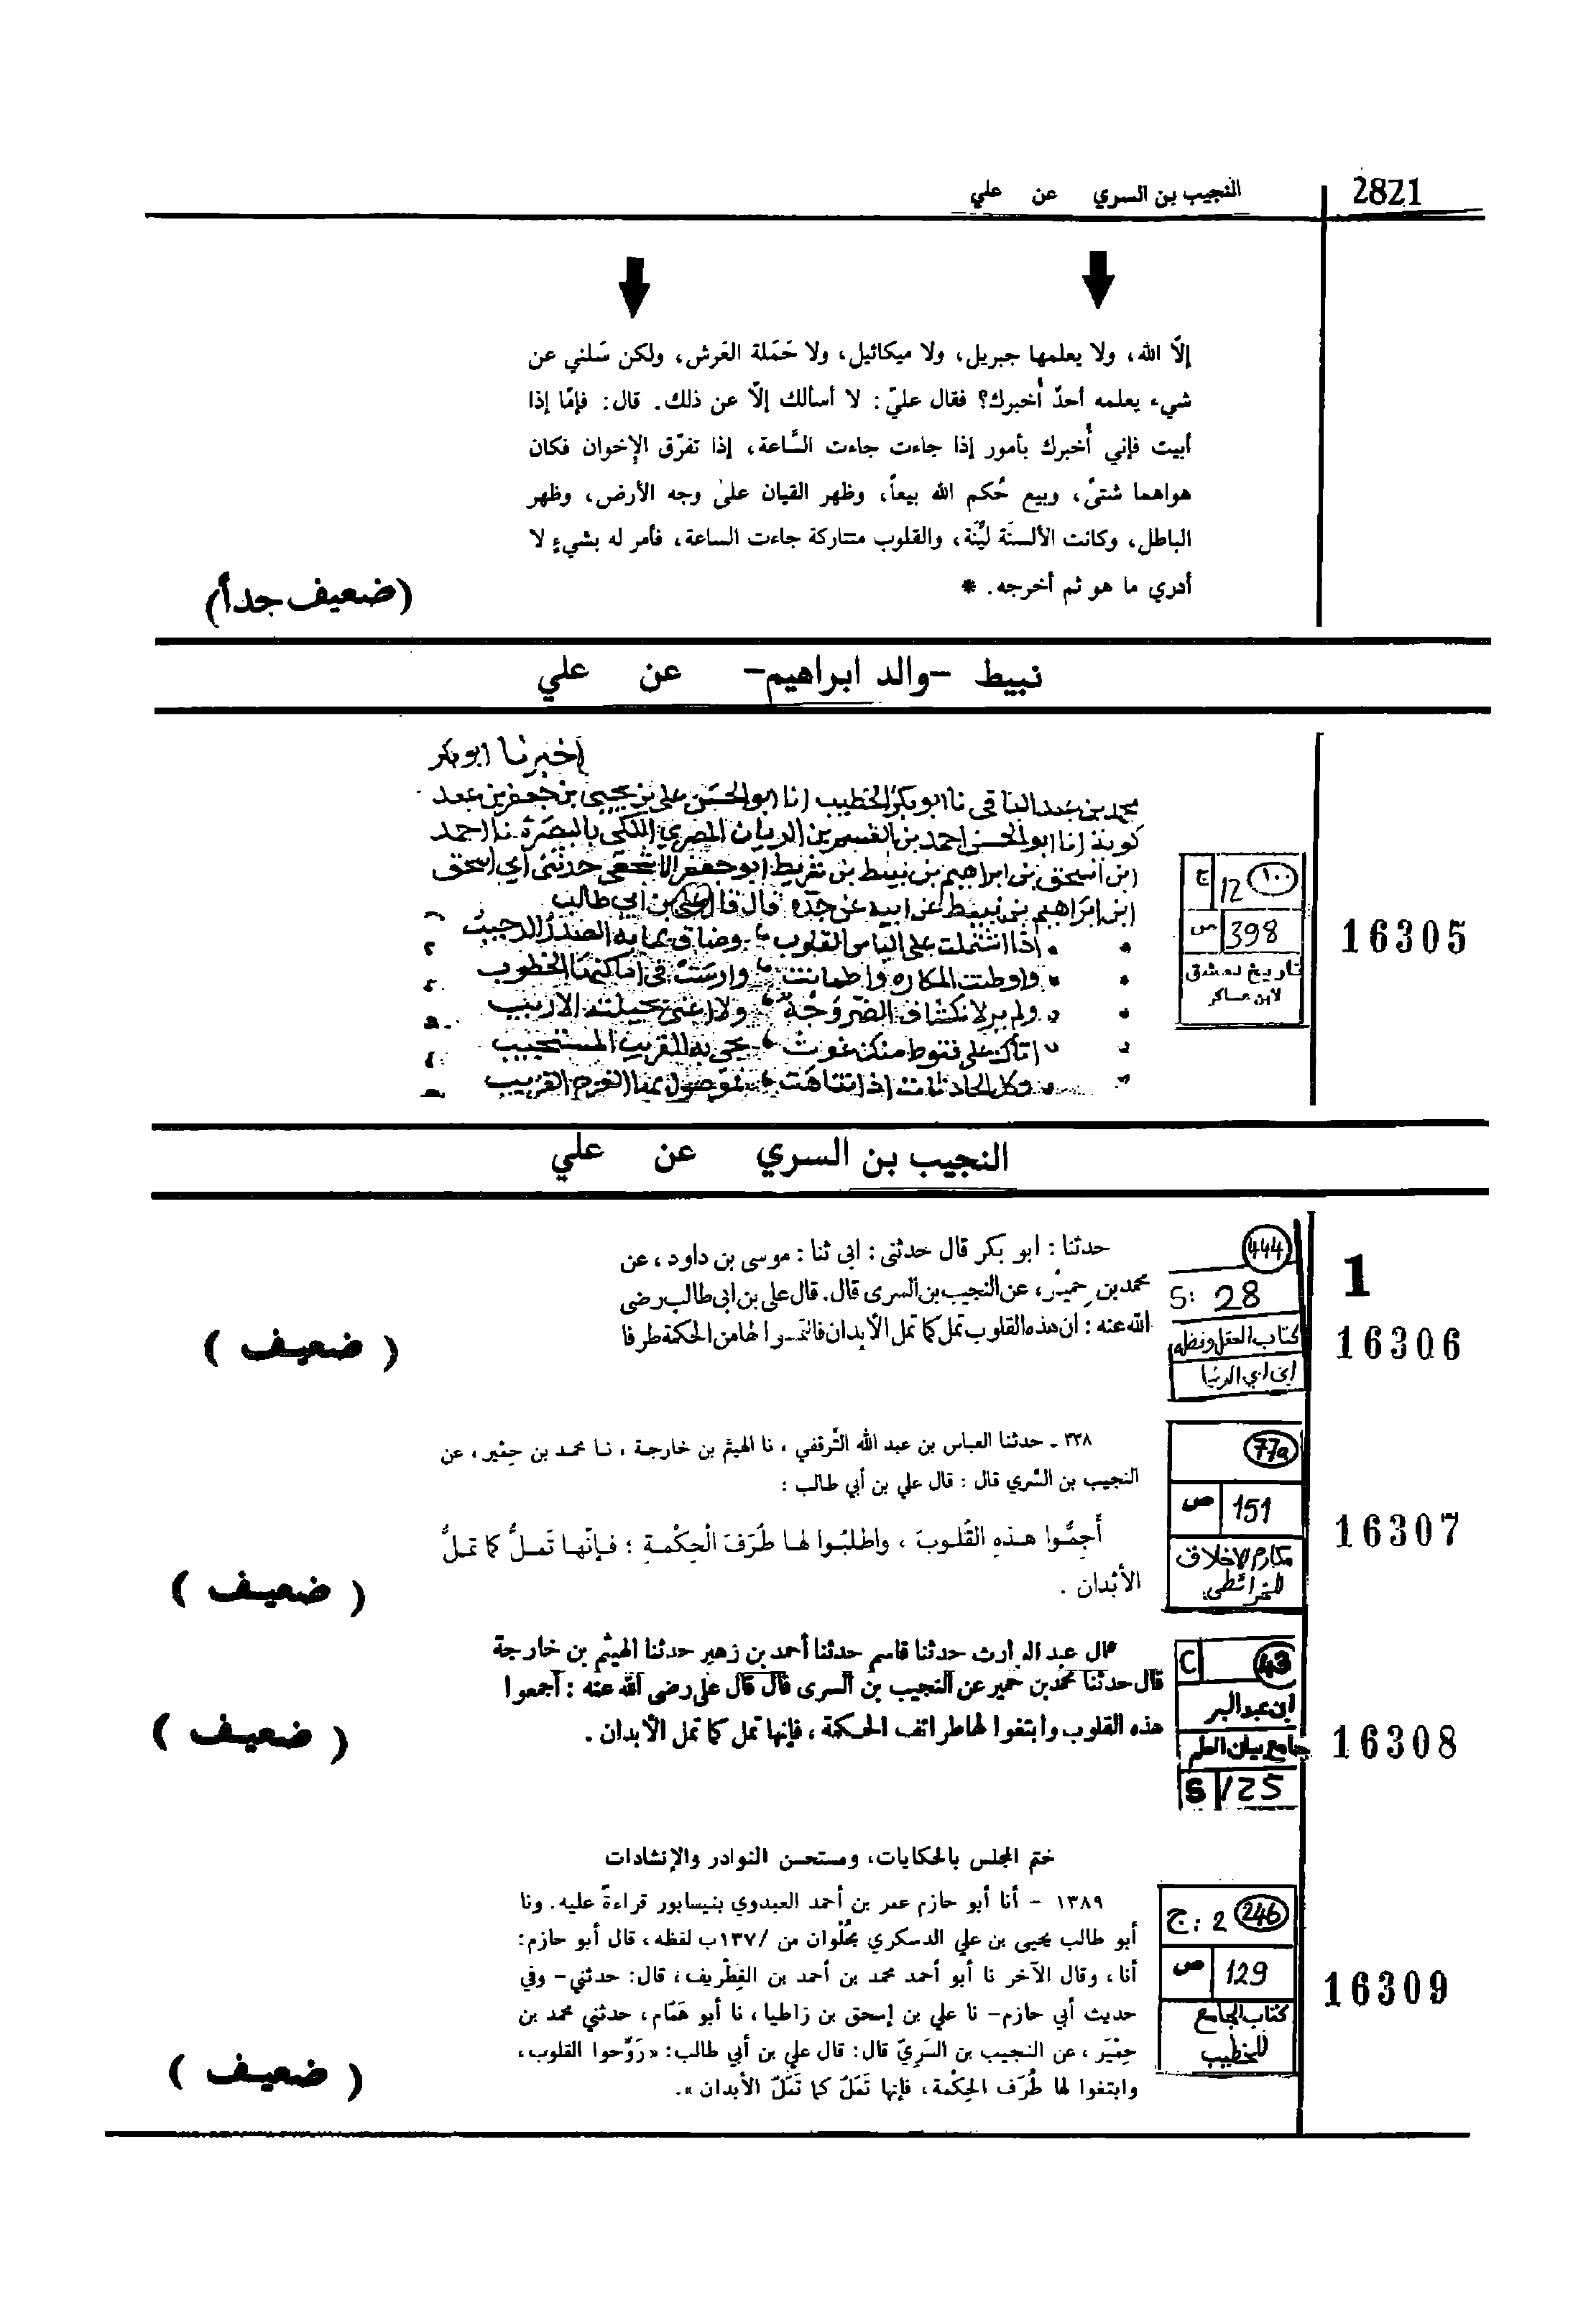 2821
النجيب بن السري عن علي
إلاّ الله، ولا يعلمها جبريل، ولا ميكائيل، ولا حَمَلة العَرش، ولكن سَلني عن
شيء يعلمه أحدٌ أُخبرك؟ فقال عليّ: لا أسألك إلاّ عن ذلك. قال: فإمّا إذا
أبيت فإني أُخبرك بأمور إذا جاءت جاءت السَّاعة، إذا تفرّق الإخوان فكان
هواهما شتىً، وبيع حُكم الله بيعاً، وظهر القيان علىٰ وجه الأرض، وظهر
الباطل، وكانت الألسنَة ليِّنَة، والقلوب متتاركة جاءت الساعة، فأمر له بشيءٍ لا
أدري ما هو ثم أخرجه. *
(ضعيف جداً)
نبيط -والد ابراهيم- عن علي
16305
ج 12 ١٠٠
ص 398
تاريخ دمشق
لابن عساكر
اخبرنا ابوبكر
محمد بن عبد الباقي نا ابو بكر الخطيب انا ابو الحسن علي بن يحيى بن جعفر بن عبد
كويه انا ابو الحسن احمد بن القسم بن الريان المصري اللكي بالبصرة نا احمد
ابن اسحق بن ابراهيم بن نبيط بن شريط ابو جعفر الاشجعي حدثني ابي اسحق
ابن ابراهيم بن نبيط عن ابيه عن جده قال قال علي بن ابي طالب
اذا اشتملت على الياس القلوب وضاق بما به الصدر الرحيب
واوطنت المكاره واطمانت وارست في اماكنها الخطوب
ولم ير لانكشاف الضر وجه ولا اغنى بحيلته الاريب
اتاك على قنوط منك غوث يجي به القريب المستجيب
وكل الحادثات اذا تناهت فموصول بها الفرج القريب
النجيب بن السري عن علي
1
16306
444
S: 28
كتاب العقل وفضله
ابن ابي الدنيا
حدثنا : ابو بكر قال حدثنى : ابى ثنا : موسى بن داود ، عن
محمد بن حمير، عن النجيب بن السرى قال. قال على بن ابى طالب رضى
الله عنه : ان هذه القلوب تمل كما تمل الأبدان فالتمسوا لها من الحكمة طرفا
( ضعيف )
16307
77a
ص 151
مكارم الاخلاق
للخرائطي
٣٣٨ ـ حدثنا العباس بن عبد الله التَّرقفي ، نا الهيثم بن خارجة ، نا محمد بن حِمْير ، عن
النجيب بن السَّري قال : قال علي بن أبي طالب :
أَجِمُّوا هذهِ القُلوبَ ، واطلبُوا لها طُرَفَ الْحِكْمةِ ؛ فإنّها تَملُّ كما تملُّ
الأبْدان .
( ضعيف )
16308
C 43
ابن عبد البر
جامع بيان العلم
S 125
قال عبد الوارث حدثنا قاسم حدثنا أحمد بن زهير حدثنا الهيثم بن خارجة
قال حدثنا محمد بن حمير عن النجيب بن السرى قال قال على رضى الله عنه : أجمعوا
هذه القلوب وابتغوا لها طرائف الحكمة ، فإنها تمل كما تمل الأبدان .
( ضعيف )
ختم المجلس بالحكايات، ومستحسن النوادر والإنشادات
16309
ج: 2 246
ص 129
كتاب الجامع
للخطيب
١٣٨٩ - أنا أبو حازم عمر بن أحمد العبدوي بنيسابور قراءةً عليه. ونا
أبو طالب يحيى بن علي الدسكري بحُلْوان من /١٣٧ب لفظه، قال أبو حازم:
أنا، وقال الآخر نا أبو أحمد محمد بن أحمد بن الغِطْريف، قال: حدثني- وفي
حديث أبي حازم- نا علي بن إسحق بن زاطيا، نا أبو هَمّام، حدثني محمد بن
حِمْيَر، عن النجيب بن السَرِيّ قال: قال علي بن أبي طالب: «رَوِّحوا القلوب،
وابتغوا لها طُرَف الحِكْمة، فإنها تَمَلّ كما تَمَلّ الأبدان».
( ضعيف )